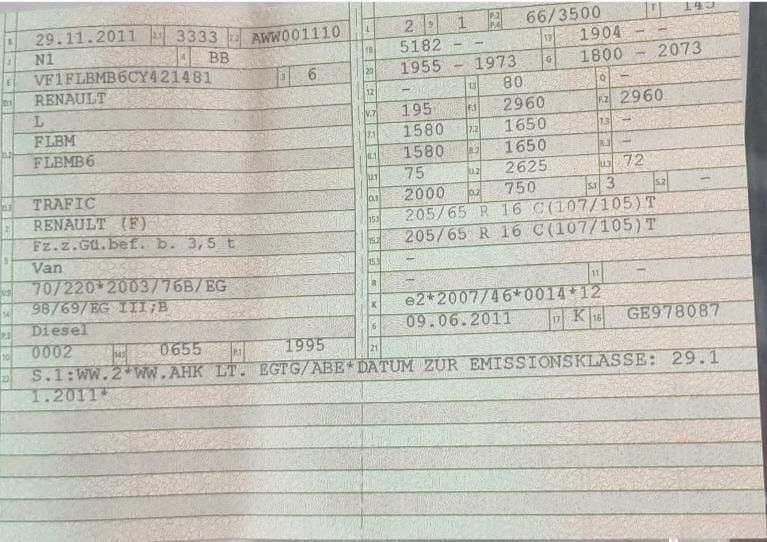 B 29.11.2011 2.1 3333 2.2 AWW001110
J N1 4 BB
E VF1FLBMB6CY421481 3 6
D.1 RENAULT
L
FLBM
D.2 FLBMB6
D.3 TRAFIC
2 RENAULT (F)
Fz.z.Gü.bef. b. 3,5 t
5 Van
V.9 70/220*2003/76B/EG
14 98/69/EG III;B
P.3 Diesel
10 0002 14.1 0655 P.1 1995
22 S.1:WW.2*WW.AHK LT. EGTG/ABE*DATUM ZUR EMISSIONSKLASSE: 29.1
1.2011*
L 2 9 1 P.2 P.4 66/3500 T 145
18 5182 - - 19 1904 - -
20 1955 - 1973 G 1800 - 2073
12 - 13 80 Q -
V.7 195 F.1 2960 F.2 2960
7.1 1580 7.2 1650 7.3 -
8.1 1580 8.2 1650 8.3 -
U.1 75 U.2 2625 U.3 72
O.1 2000 O.2 750 S.1 3 S.2 -
15.1 205/65 R 16 C(107/105)T
15.2 205/65 R 16 C(107/105)T
15.3 -
R - 11 -
K e2*2007/46*0014*12
6 09.06.2011 17 K 16 GE978087
21